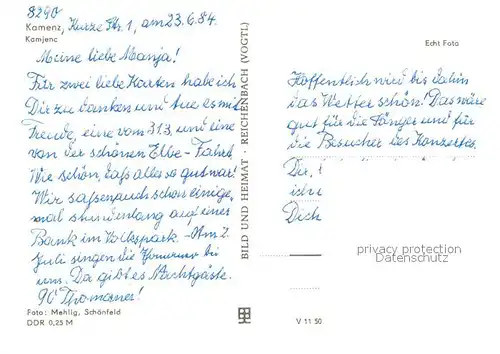 8290
Kamenz, Kurze Str. 1, am 23.6.84.
Kamjenc
Meine liebe Manja!
Für zwei liebe Karten habe ich
Dir zu danken und tue es mit
Freude, eine vom 31.3. und eine
von der schönen Elbe-Fahrt.
Wie schön, daß alles so gut war!
Wir saßen auch schon einige
mal stundenlang auf einer
Bank im Volkspark. - Am 2.
Juli singen die Thomaner bei
uns. Da gibt es Nachtgäste.
90 Thomaner!
Foto: Mehlig, Schönfeld
DDR 0,25 M
BILD UND HEIMAT · REICHENBACH (VOGTL)
Echt Foto
Hoffentlich wird bis dahin
das Wetter schön! Das wäre
gut für die Sänger und für
die Besucher des Konzertes.
Dir,
ich
Dich
privacy protection
Datenschutz
V 11 50